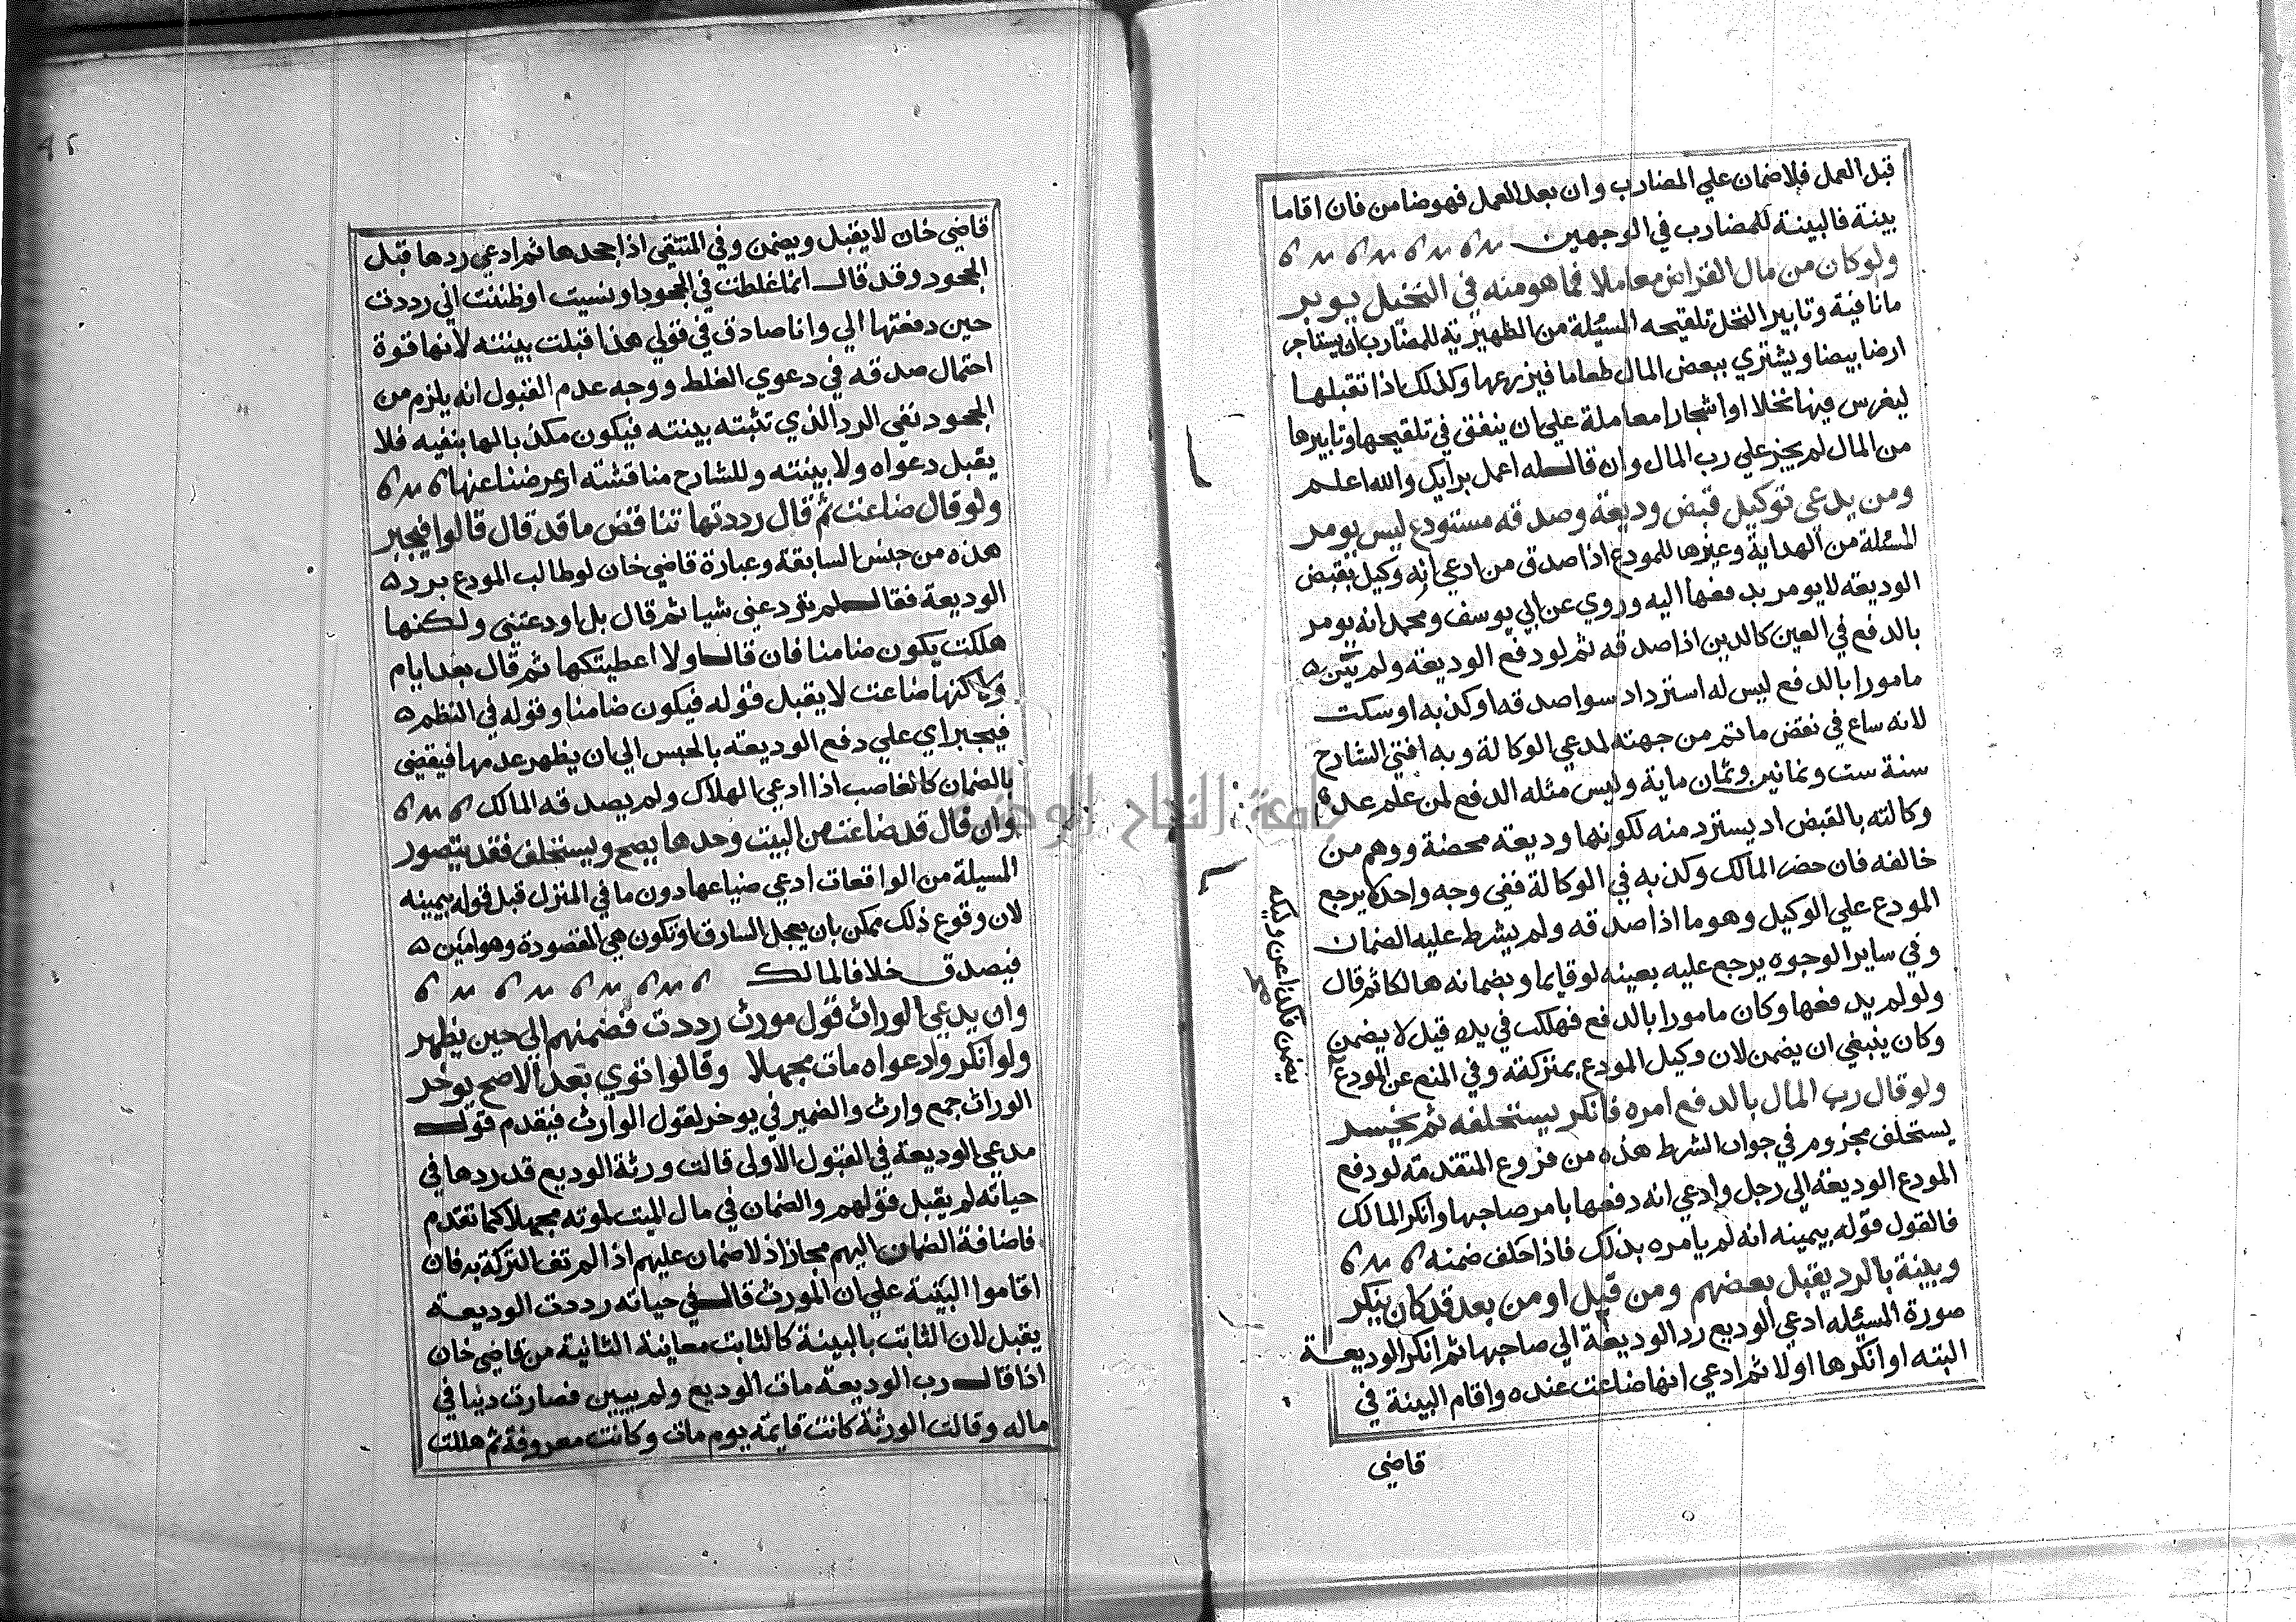 قبل العمل فلا ضمان علي المضارب وان بعد العمل فهو ضامن فان اقاما
بينة فالبينة للمضارب في الوجهين
ولو كان من مال القراض معاملا فما هو منه في النخيل يوبر
مانافية وتابير النخل تلقيحه المسئلة من الظهيرية للمضارب ان يستاجر
ارضا بيضا ويشتري ببعض المال طعاما فيزرعها وكذلك اذا تقبلها
ليغرس فيها نخلا او اشجارا معاملة علي ان ينفق في تلقيحها وتابيرها
من المال لم يجز علي رب المال وان قال له اعمل برايك والله اعلم
ومن يدعي توكيل قبض وديعة وصدقه مستودع ليس يومر
المسئلة من الهداية وغيرها للمودع اذا صدق من ادعي انه وكيل بقبض
الوديعة لا يومر بدفعها اليه وروي عن ابي يوسف ومحمد انه يومر
بالدفع في العين كالدين اذا صدقه ثم لو دفع الوديعة ولم يكن
مامورا بالدفع ليس له استرداد سوا صدقه او كذبه او سكت
لانه ساع في نقض ما تم من جهته لمدعي الوكالة وبه افتي الشارح
سنة ست وثمانين وثمان ماية وليس مثله الدفع لمن علم عدم
وكالته بالقبض اد يسترد منه لكونها وديعة محضة ووهم من
خالفه فان حضر المالك وكذبه في الوكالة ففي وجه واحد لا يرجع
المودع علي الوكيل وهو ما اذا صدقه ولم يشرط عليه الضمان
وفي ساير الوجوه يرجع عليه بعينه لو قايما وبضمانه هالكا ثم قال
ولو لم يدفعها وكان مامورا بالدفع فهلكت في يده قيل لا يضمن
وكان ينبغي ان يضمن لان وكيل المودع بمنزلته وفي المنع عن المودع
يضمن فكذا عن وكيله
صح
ولو قال رب المال بالدفع امره فانكر يستحلفه ثم يخسر
يستحلف مجزوم في جواب الشرط هذه من فروع المتقدمة لو دفع
المودع الوديعة الي رجل وادعي انه دفعها بامر صاحبها وانكر المالك
فالقول قوله بيمينه انه لم يامره بذلك فاذا حلف ضمنه
وبينة بالرد يقبل بعضهم ومن قبل او من بعد قد كان ينكر
صورة المسيله ادعي الوديع رد الوديعة الي صاحبها ثم انكر الوديعة
البته او انكرها اولا ثم ادعي انها ضاعت عنده واقام البينة في
قاضي
قاضي خان لا يقبل ويضمن وفي المنتقي اذا جحدها ثم ادعي ردها قبل
الجحود وقد قال انما غلطت في الجحود او نسيت او ظننت اني رددت
حين دفعتها الي وانا صادق في قولي هذا قبلت بينته لانها قوة
احتمال صدقه في دعوي الغلط ووجه عدم القبول انه يلزم من
الجحود نفي الرد الذي تثبته بينته فيكون مكذبا لها بنفيه فلا
يقبل دعواه ولا بينته وللشارح مناقشته اعرضنا عنها
ولو قال ضاعت ثم قال رددتها تناقض ما قد قال قالوا فيجبر
هذه من جنس السابقة وعبارة قاضي خان لو طالب المودع برد
الوديعة فقال لم تودعني شيا ثم قال بل اودعتني ولكنها
هلكت يكون ضامنا فان قال اولا اعطيتكها ثم قال بعد ايام
لكنها ضاعت لا يقبل قوله فيكون ضامنا وقوله في النظم
فيجبر اي علي دفع الوديعة بالحبس الي ان يظهر عدمها فيقضي
بالضمان كالغاصب اذا ادعي الهلاك ولم يصدقه المالك
وان قال قد ضاعت من البيت وحدها يصح ويستحلف فقد يتصور
المسيلة من الواقعات ادعي ضياعها دون ما في المنزل قبل قوله بيمينه
لان وقوع ذلك ممكن بان يعجل السارق او تكون هي المقصودة وهو امين
فيصدق خلافا لمالك
وان يدعي الوراث قول مورث رددت فضمنهم الي حين يظهر
ولو انكر وادعواه مات مجهلا وقالوا توي بعد الاصح يوخر
الوراث جمع وارث والضمير في يوخر لقول الوارث فيقدم قول
مدعي الوديعة في القبول الاولي قالت ورثة الوديع قد ردها في
حياته لم يقبل قولهم والضمان في مال الميت لموته مجهلا كما تقدم
فاضافة الضمان اليهم مجاز اذ لا ضمان عليهم اذا لم تف التركة به فان
اقاموا البينة علي ان المورث قال في حياته رددت الوديعة
يقبل لان الثابت بالبينة كالثابت معاينة الثانية من قاضي خان
اذا قال رب الوديعة مات الوديع ولم يبين فصارت دينا في
ماله وقالت الورثة كانت قايمة يوم مات وكانت معروفة ثم هلكت
جامعة النجاح الوطنية